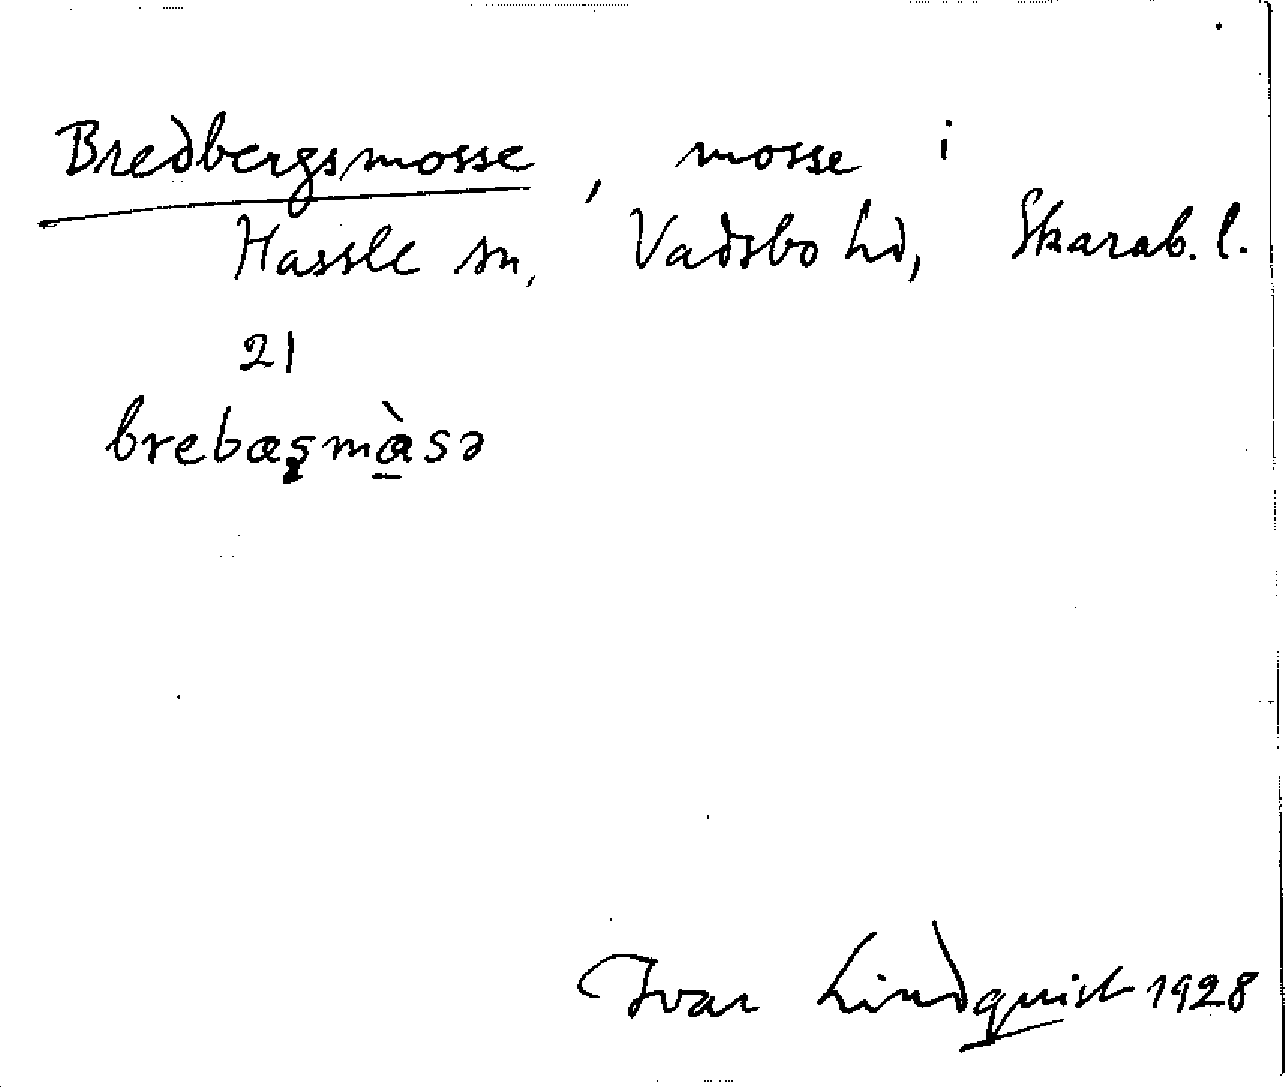 Bredbergsmosse, mosse i
Hassle sn, Vadsbo hd, Skarab. l.
21
brebæʂmà̲sə
Ivar Lindquist 1928